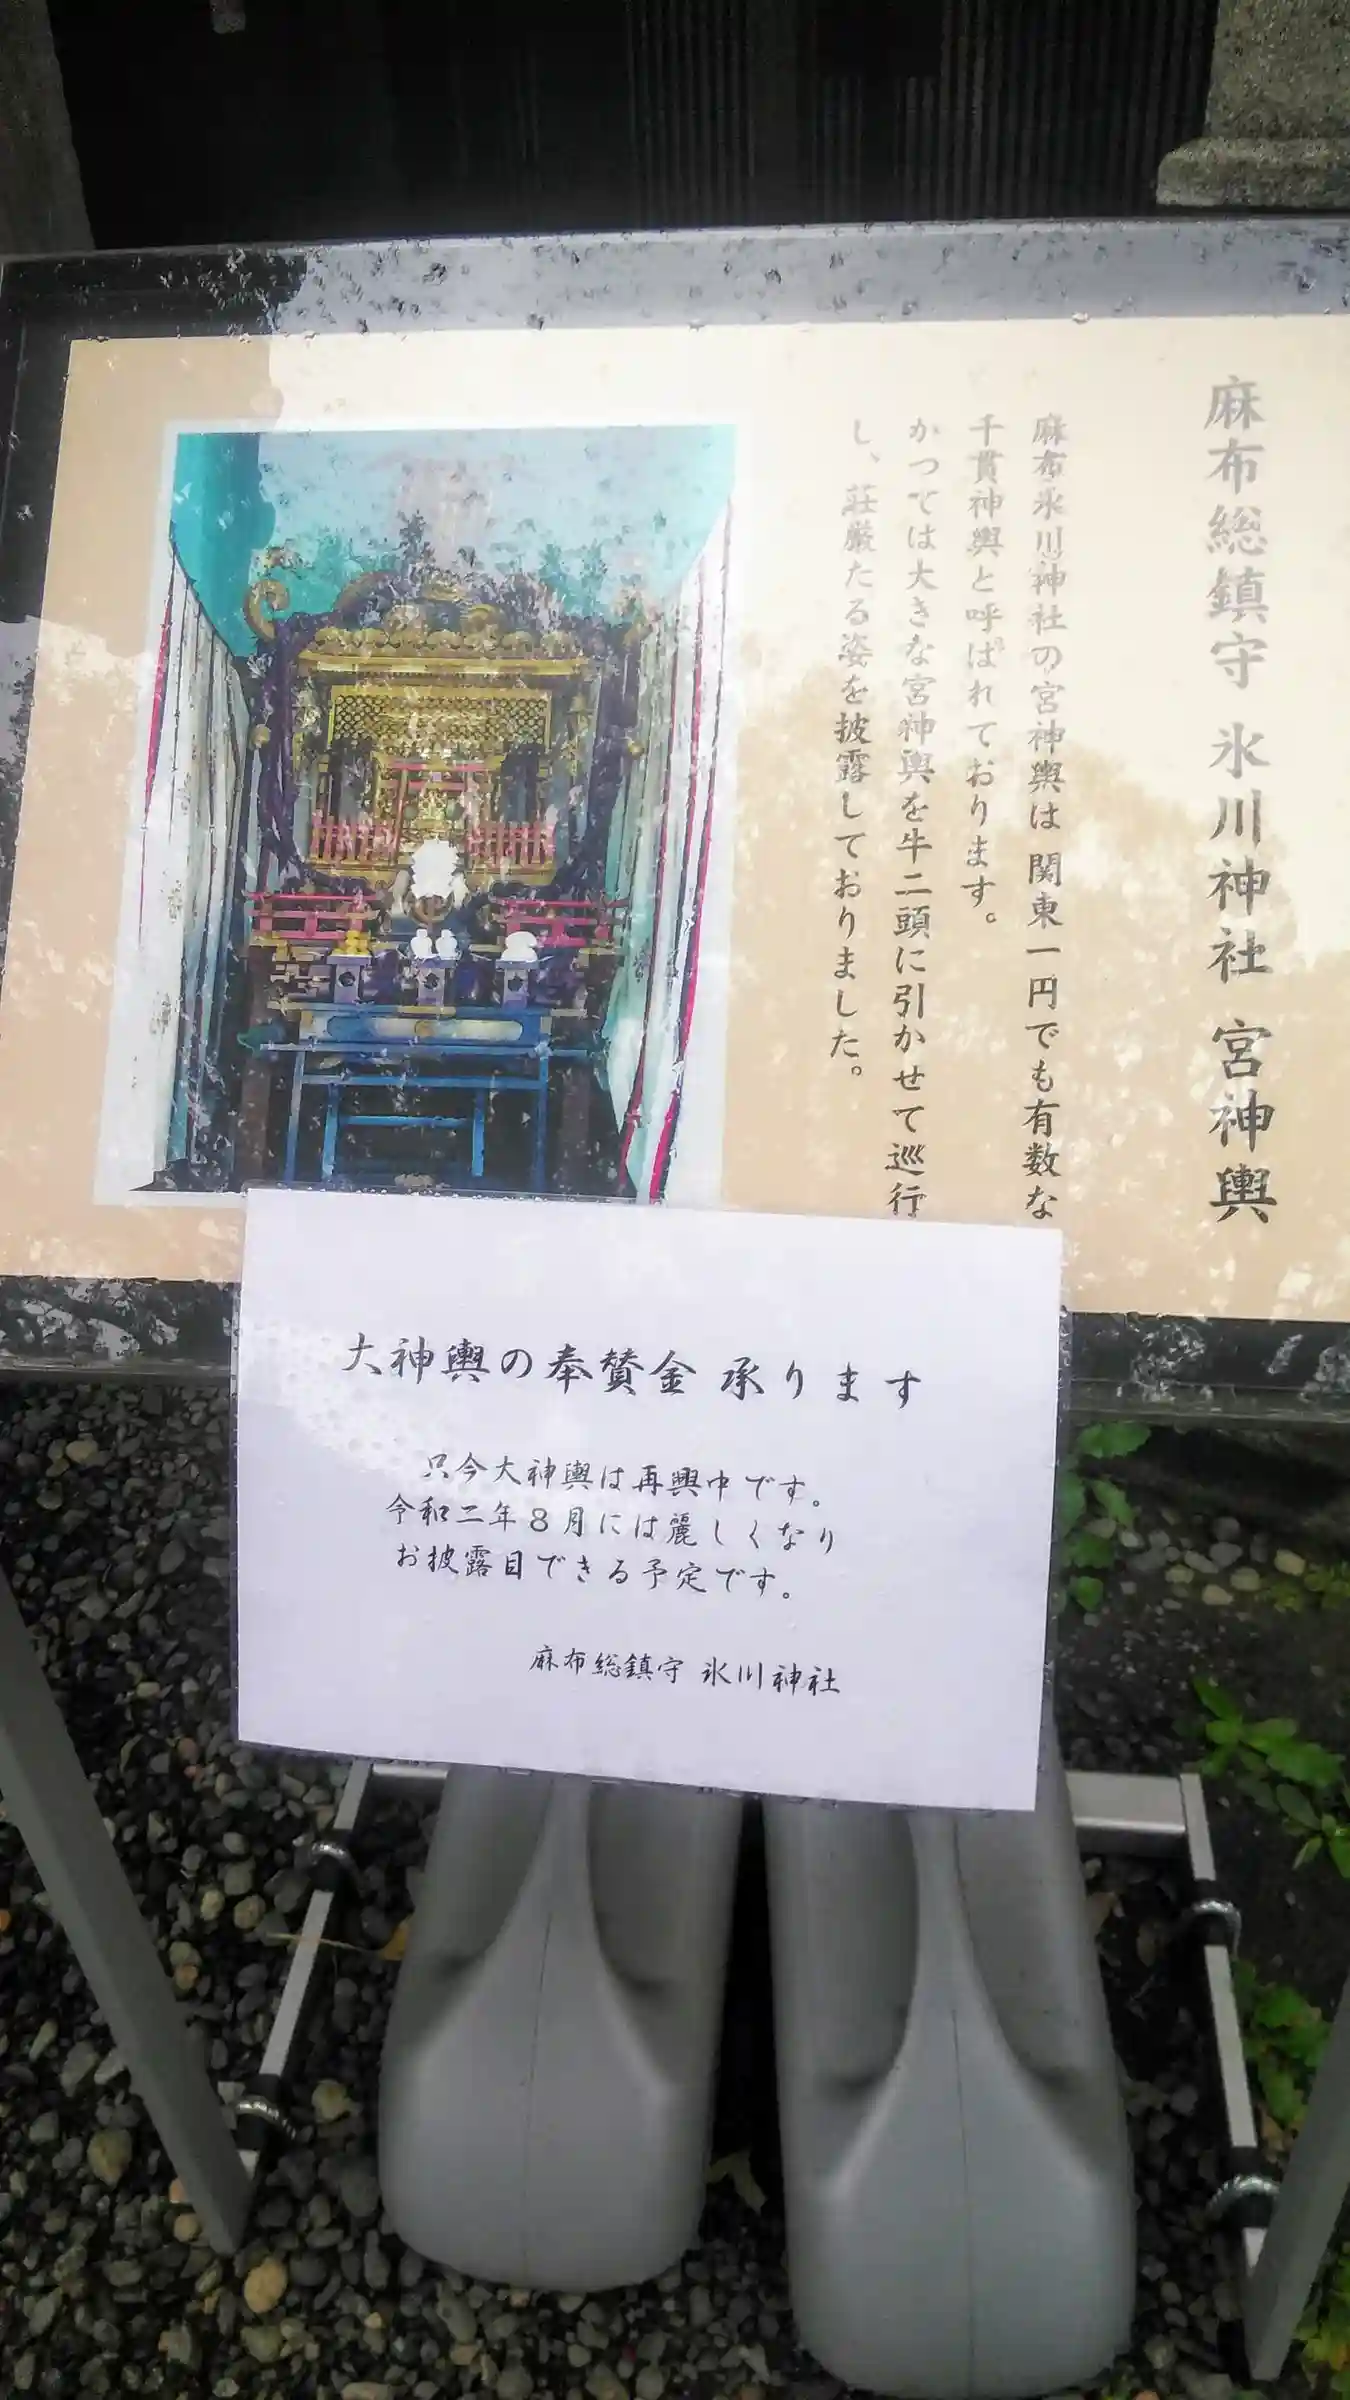 麻布総鎮守 氷川神社 宮神輿
麻布氷川神社の宮神輿は 関東一円でも有数な
千貫神輿と呼ばれております。
かつては大きな宮神輿を牛二頭に引かせて巡行
し、荘厳たる姿を披露しておりました。
大神輿の奉賛金 承ります
只今大神輿は再興中です。
令和二年8月には麗しくなり
お披露目できる予定です。
麻布総鎮守 氷川神社